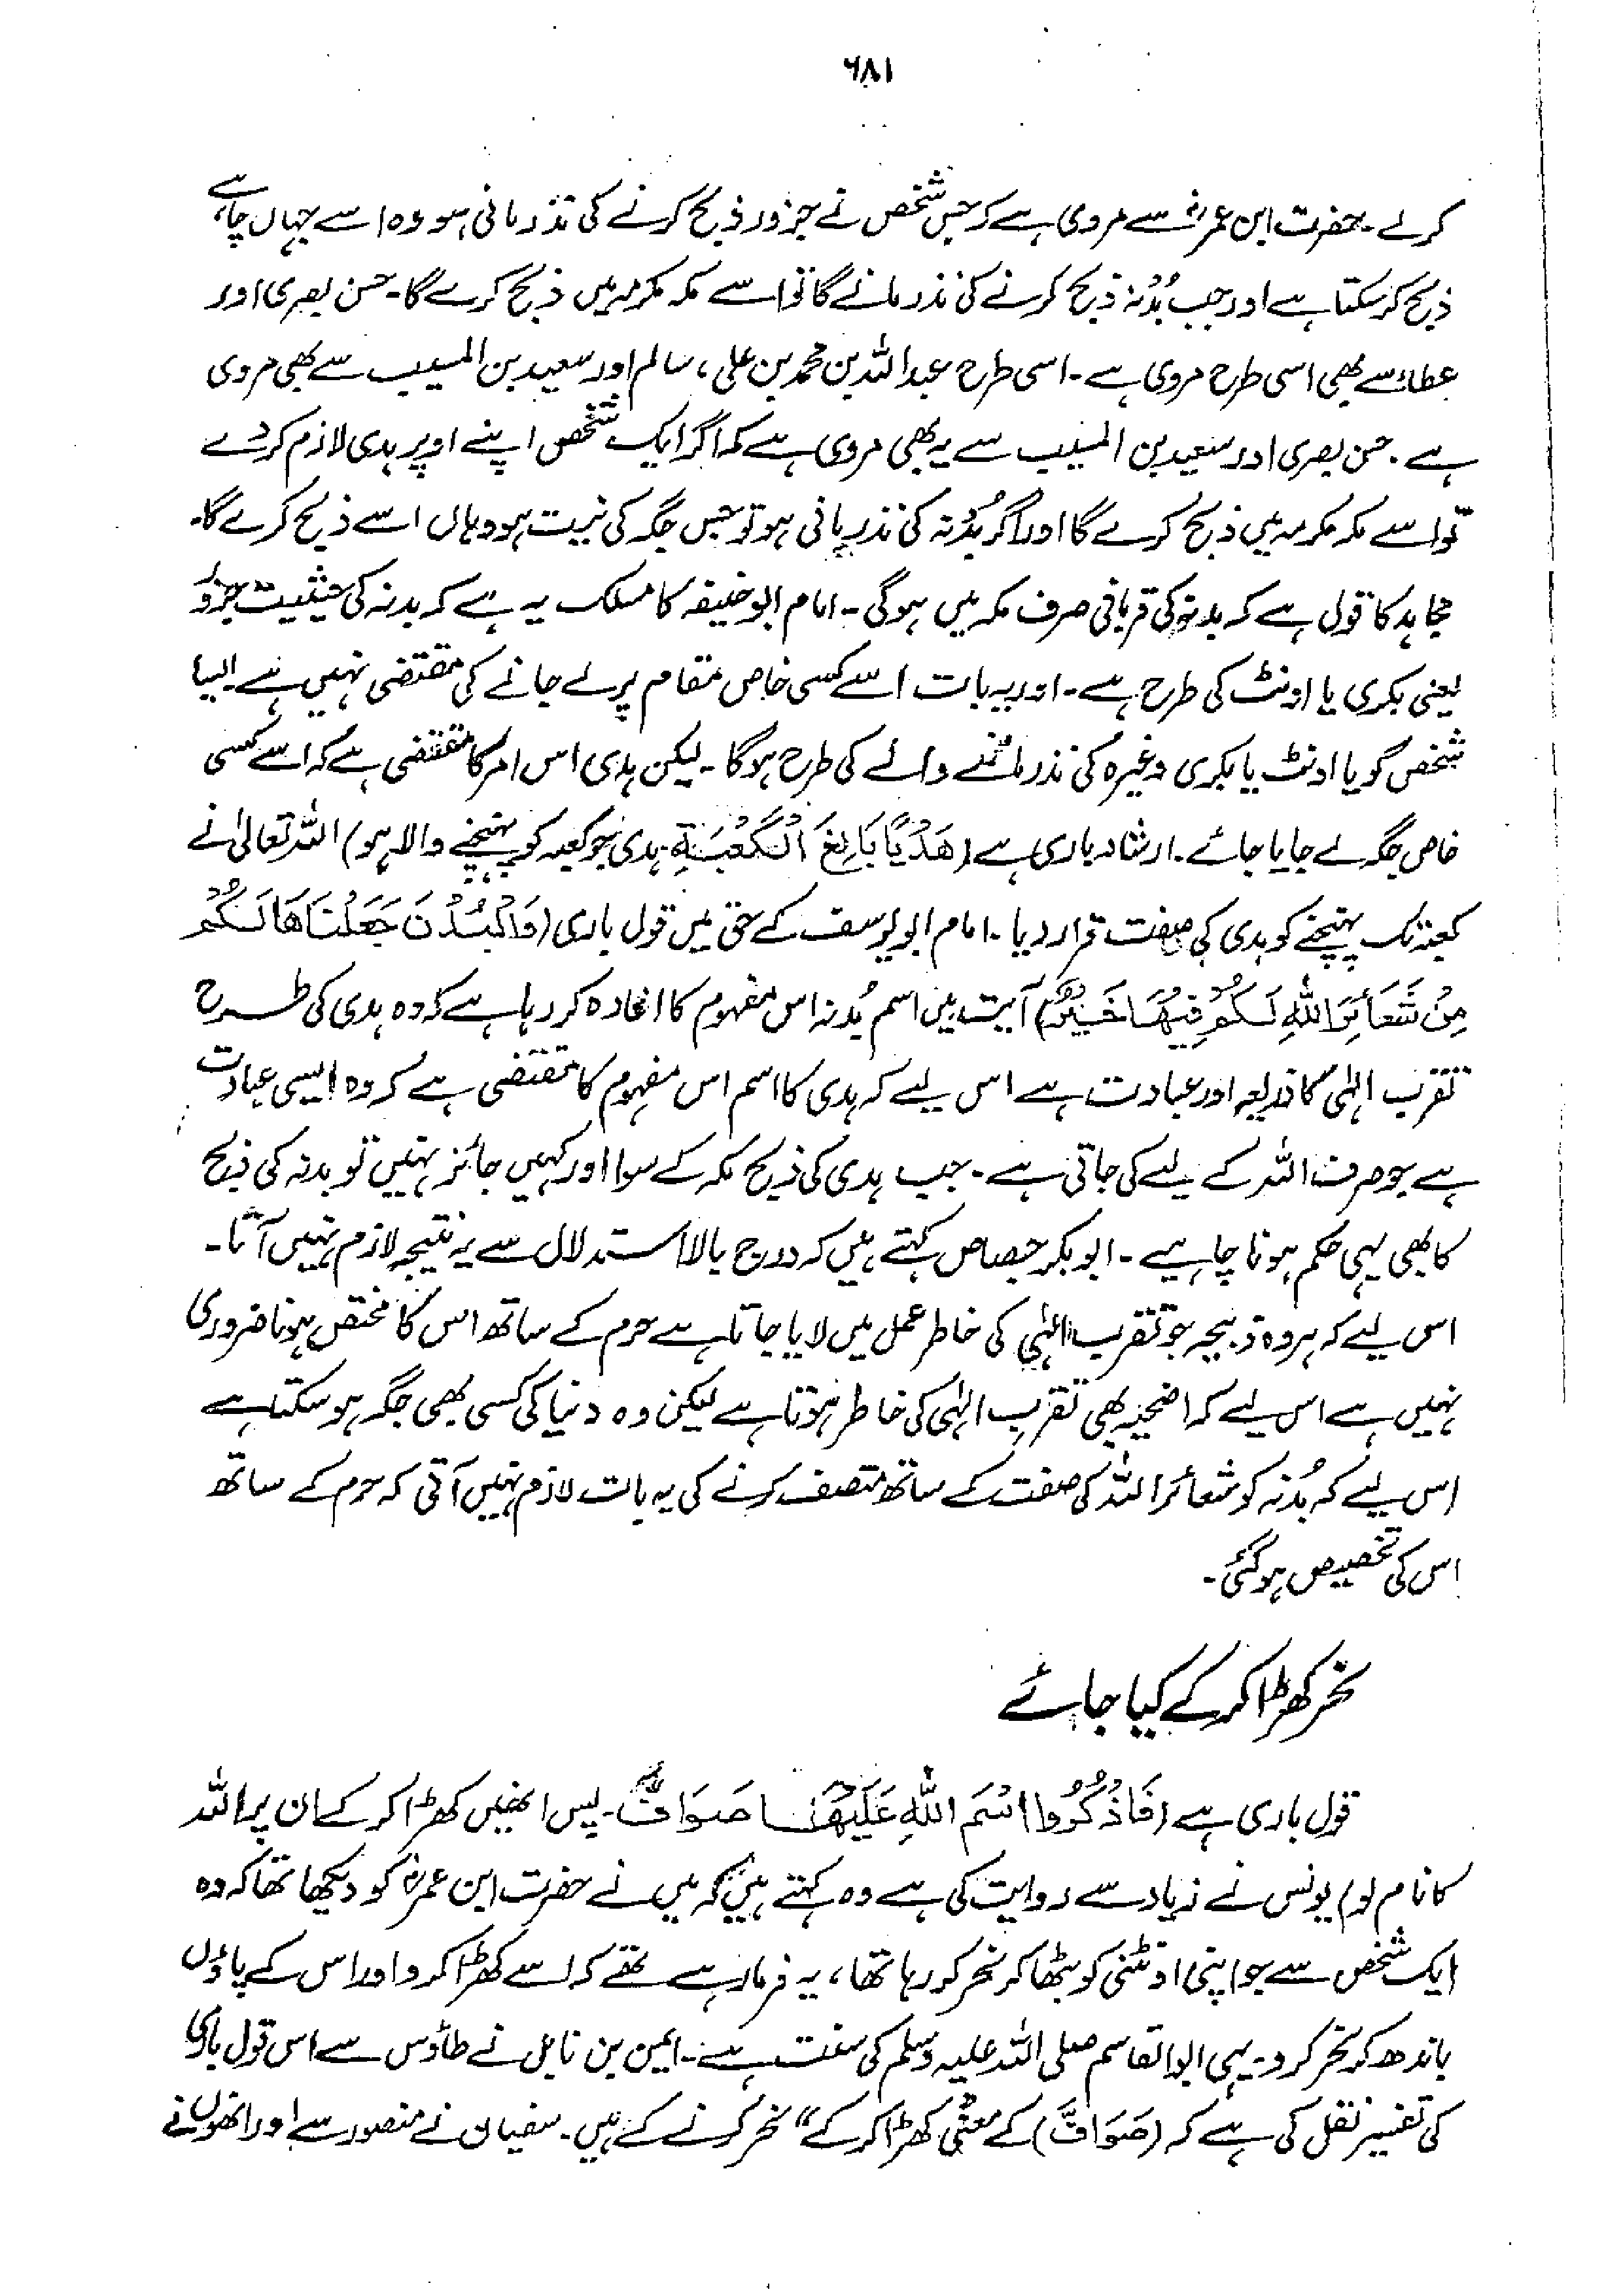 ۶۸۱
کرلے۔ حضرت ابن عمرؓ سے مروی ہے کہ جس شخص نے جزور ذبح کرنے کی نذر مانی ہو وہ اسے جہاں چاہے
ذبح کرسکتا ہے اور جب بُدْنہ ذبح کرنے کی نذر مانے گا تو اسے مکہ مکرمہ میں ذبح کرے گا۔ حسن بصری اور
عطاء سے بھی اسی طرح مروی ہے۔ اسی طرح عبداللہ بن محمد بن علی، سالم اور سعید بن المسیب سے بھی مروی
ہے۔ حسن بصری اور سعید بن المسیب سے یہ بھی مروی ہے کہ اگر ایک شخص اپنے اوپر ہدی لازم کردے
تو اسے مکہ مکرمہ میں ذبح کرے گا اور اگر بُدْنہ کی نذر مانی ہو تو جس جگہ کی نیت ہو وہاں اسے ذبح کرے گا۔
مجاہد کا قول ہے کہ بدنہ کی قربانی صرف مکہ میں ہوگی۔ امام ابو حنیفہ کا مسلک یہ ہے کہ بدنہ کی حیثیت جزور
یعنی بکری یا اونٹ کی طرح ہے۔ اور یہ بات اسے کسی خاص مقام پر لے جانے کی مقتضی نہیں ہے۔ ایسا
شخص گویا اونٹ یا بکری وغیرہ کی نذر ماننے والے کی طرح ہوگا۔ لیکن ہدی اس امر کا مقتضی ہے کہ اسے کسی
خاص جگہ لے جایا جائے۔ ارشاد باری ہے (هَدْيًا بَالِغَ الْكَعْبَةِ۔ ہدی جو کعبہ کو پہنچنے والا ہو) اللہ تعالیٰ نے
کعبہ تک پہنچنے کو ہدی کی صفت قرار دیا۔ امام ابو یوسف کے حق میں قول باری (وَالْبُدْنَ جَعَلْنَاهَا لَكُمْ
مِنْ شَعَائِرِ اللهِ لَكُمْ فِيْهَا خَيْرٌ) آیت میں اسم بُدنہ اس مفہوم کا افادہ کر رہا ہے کہ وہ ہدی کی طرح
تقرب الٰہی کا ذریعہ اور عبادت ہے اس لیے کہ ہدی کا اسم اس مفہوم کا مقتضی ہے کہ وہ ایسی عبادت
ہے جو صرف اللہ کے لیے کی جاتی ہے۔ جب ہدی کی ذبح مکہ کے سوا اور کہیں جائز نہیں تو بدنہ کی ذبح
کا بھی یہی حکم ہونا چاہیے۔ ابوبکر جصاص کہتے ہیں کہ درج بالا استدلال سے یہ نتیجہ لازم نہیں آتا۔
اس لیے کہ ہر وہ ذبیحہ جو تقرب الٰہی کی خاطر عمل میں لایا جاتا ہے حرم کے ساتھ اس کا مختص ہونا ضروری
نہیں ہے اس لیے کہ اضحیہ بھی تقرب الٰہی کی خاطر ہوتا ہے لیکن وہ دنیا کی کسی بھی جگہ ہو سکتا ہے
اس لیے کہ بُدنہ کو شعائر اللہ کی صفت کے ساتھ متصف کرنے کی یہ بات لازم نہیں آتی کہ حرم کے ساتھ
اس کی تخصیص ہو گئی۔
نحر کھڑا کر کے کیا جائے
قول باری ہے (فَاذْكُرُوا اسْمَ اللهِ عَلَيْهَا صَوَافَّ۔ پس انھیں کھڑا کر کے ان پر اللہ
کا نام لو) یونس نے زیاد سے روایت کی ہے وہ کہتے ہیں کہ میں نے حضرت ابن عمرؓ کو دیکھا تھا کہ وہ
ایک شخص سے جو اپنی اونٹنی کو بٹھا کر نحر کر رہا تھا، یہ فرما رہے تھے کہ اسے کھڑا کرو اور اس کے پاؤں
باندھ کر نحر کرو۔ یہی ابوالقاسم صلی اللہ علیہ وسلم کی سنت ہے۔ ایمن بن نابل نے طاؤس سے اس قول باری
کی تفسیر نقل کی ہے کہ (صَوَافَّ) کے معنی کھڑا کر کے“ نحر کرنے کے ہیں۔ سفیان نے منصور سے اور انھوں نے